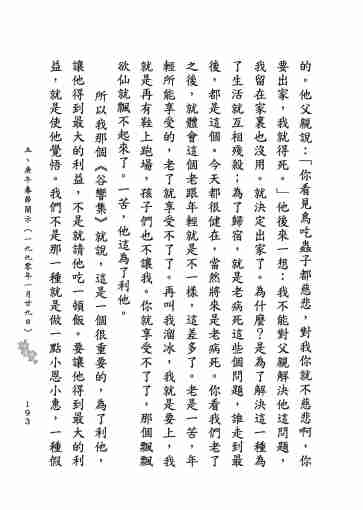 的。他父親說：「你看見鳥吃蟲子都慈悲，對我你就不慈悲啊，你
要出家，我就得死。」他後來一想：我不能對父親解決他這問題，
我留在家裏也沒用。就決定出家了。為什麼？是為了解決這一種為
了生活就互相殘殺；為了歸宿。就是老病死這些個問題，誰走到最
後，都是這個。今天都很健在，當然將來是老病死。你看我們老了
之後，就體會這個老跟年輕就是不一樣，這差多了。老是一苦，年
輕所能享受的，老了就享受不了了。再叫我溜冰，我就是要上，我
就是再有鞋上跑場，孩子們也不讓我。你就享受不了了，那個飄飄
欲仙就飄不起來了。一苦，他這為了利他。
所以我那個《谷響集》就說，這是一個很重要的，為了利他，
讓他得到最大的利益，不是就請他吃一頓飯。要讓他得到最大的利
益，就是使他覺悟。我們不是那一種就是做一點小恩小惠，一種假
五、庚午春節開示（一九九零年一月廿九日）
193